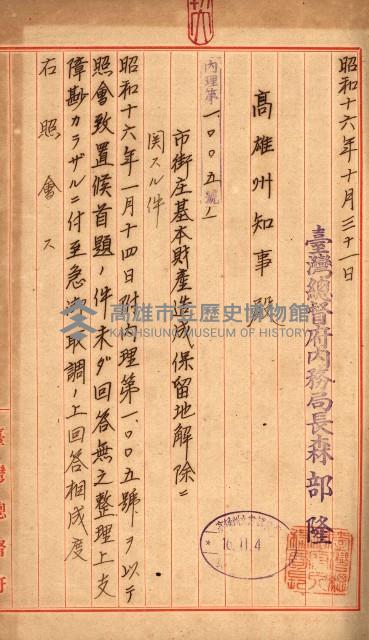 昭和十六年十月三十一日
臺灣總督府內務局長森部隆
高雄州知事殿
內理第一、〇〇五號ノ
市街庄基本財產造成保留地解除ニ
関スル件
昭和十六年一月十四日附內理第一、〇〇五號ヲ以テ
照會致置候首題ノ件未ダ回答無之整理上支
障尠カラザルニ付至急御取調ノ上回答相成度
右照會ス
高雄市立歷史博物館
KAOHSIUNG MUSEUM OF HISTORY
16.11.4
臺灣總督府